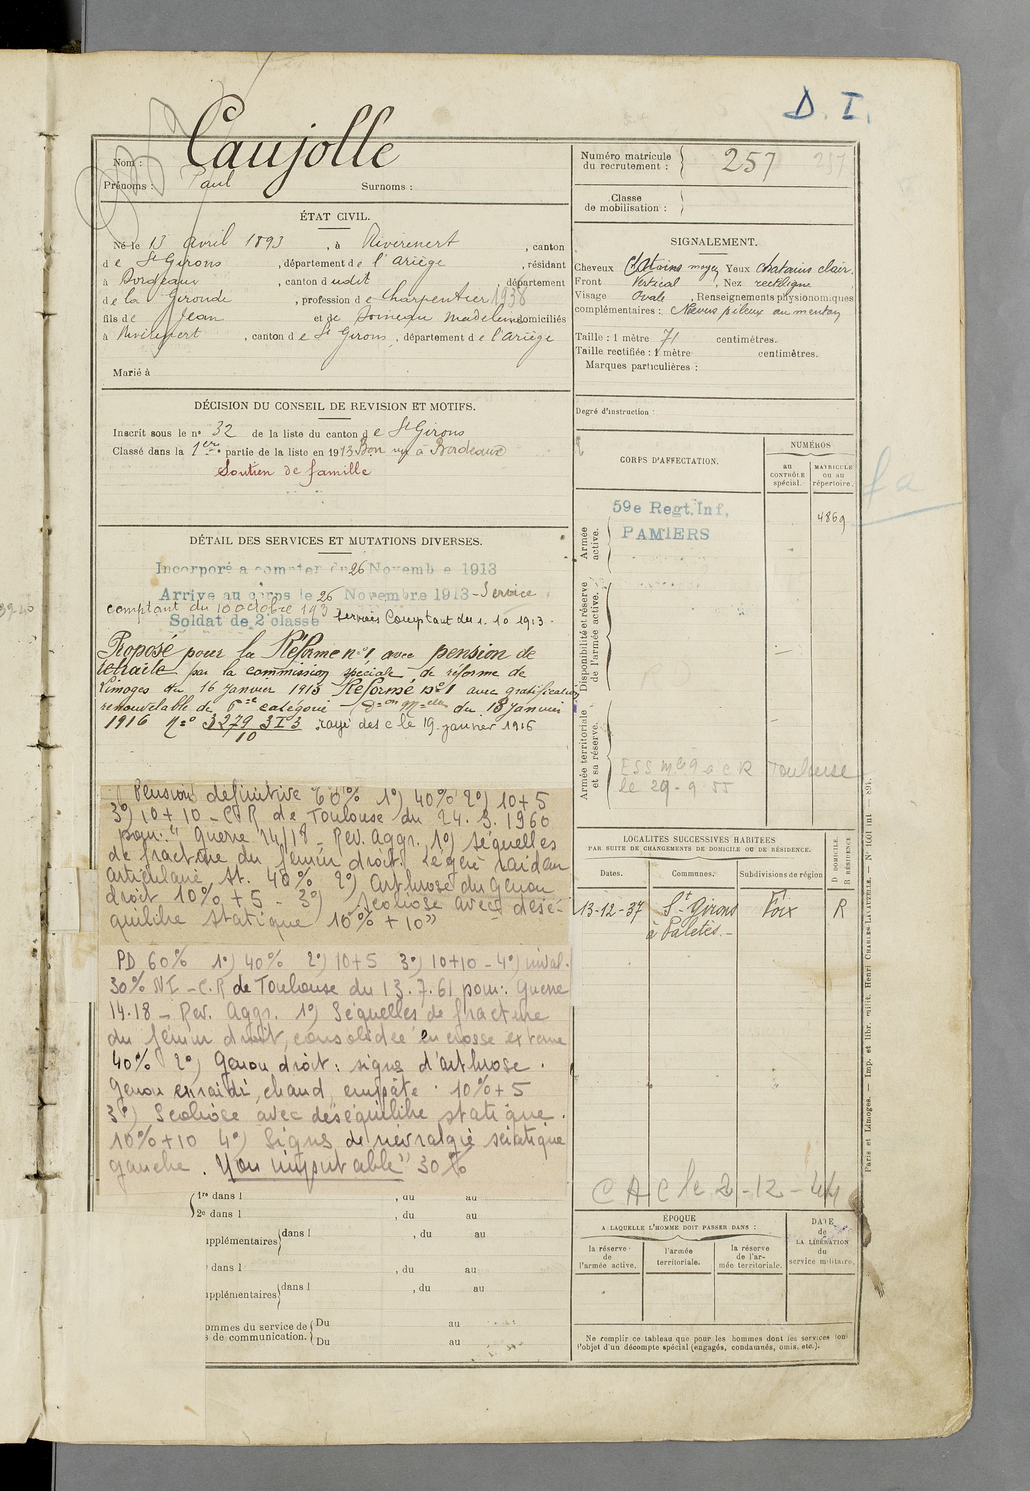 D. I.
Nom :
Caujolle
Prénoms :
Paul
Surnoms :
Numéro matricule
du recrutement :
257
257
Classe
de mobilisation :
ÉTAT CIVIL.
Né le 13 avril 1893, à Rivèrenert, canton
de St Girons, département de l'Ariège, résidant
à Bordeaux, canton du dit, département
de la Gironde, profession de Charpentier 1938
fils de Jean et de Soineau Madeleine domiciliés
à Rivèrenert, canton de St Girons, département de l'Ariège
Marié à
SIGNALEMENT.
Cheveux Chatains moyen Yeux chatains clair.
Front Vertical, Nez rectiligne,
Visage Ovale, Renseignements physionomiques
complémentaires : Naevus pileux au menton
Taille : 1 mètre 71 centimètres.
Taille rectifiée : 1 mètre centimètres.
Marques particulières :
Degré d'instruction :
DÉCISION DU CONSEIL DE REVISION ET MOTIFS.
Inscrit sous le no 32 de la liste du canton de St Girons
Classé dans la 1ère partie de la liste en 1913 Bon vu à Bordeaux
Soutien de famille
CORPS D'AFFECTATION.
NUMÉROS
au
CONTRÔLE
spécial.
MATRICULE
ou au
répertoire.
Armée
active.
59e Regt. Inf,
PAMIERS
4869
fa
Disponibilité et réserve
de l'armée active.
Armée territoriale
et sa réserve.
Toulouse
le 29-9 55
DÉTAIL DES SERVICES ET MUTATIONS DIVERSES.
Incorporé a compter du 26 Novembre 1913
Arrivé au corps le 26 Novembre 1913 - Service
comptant du 10 octobre 193
Soldat de 2e classe Services Comptant du 1. 10 1913.
Proposé pour la Réforme n°1 avec pension de
retraite par la commission spéciale de réforme de
Limoges du 16 janvier 1915 Réformé n°1 avec gratification
renouvelable de 6me catégorie du 18 janvier
1916 No 3279 3I3 rayé des c le 19 janvier 1916
10
Pension définitive 60% 1°) 40% 2°) 10+5
3°) 10+10 - C.R de Toulouse du 24. 3. 1960
pour: "Guerre 14/18 - Rev. Aggr. 1°) séquelles
de fracture du fémur droit. Légère raideur
articulaire, st. 40% 2°) arthrose du genou
droit 10% + 5 - 3°) Scoliose avec désé-
quilibre statique 10% + 10"
PD 60% 1°) 40% 2°) 10+5 3°) 10+10 - 4°) inval.
30% NI - C.R de Toulouse du 13.7.61 pour: Guerre
14.18 - Rev. Aggr. 1°) Séquelles de fracture
du fémur droit, consolidée en crosse externe
40% 2°) Genou droit: signes d'arthrose.
Genou enraidi, chaud, empâté: 10% + 5
3°) Scoliose avec déséquilibre statique.
10% + 10 4°) Signes de névralgie sciatique
gauche. Non imputable" 30%
LOCALITÉS SUCCESSIVES HABITÉES
PAR SUITE DE CHANGEMENTS DE DOMICILE OU DE RÉSIDENCE.
D DOMICILE.
R RÉSIDENCE
Dates. Communes. Subdivisions de région
13-12-37 St-Girons Foix R
à Paletès.-
CAC le 2-12-44
1re dans l , du au
2e dans l , du au
upplémentaires dans l , du au
dans l , du au
upplémentaires dans l , du au
ommes du service de Du au
s de communication. Du au
ÉPOQUE
A LAQUELLE L'HOMME DOIT PASSER DANS :
la réserve
de
l'armée active.
l'armée
territoriale.
la réserve
de l'ar-
mée territoriale.
DATE
de
LA LIBÉRATION
du
service militaire.
Ne remplir ce tableau que pour les hommes dont les services font
l'objet d'un décompte spécial (engagés, condamnés, omis, etc.).
Paris et Limoges. — Imp. et libr. milit. Henri CHARLES-LAVAUZELLE. — N° 1601 int — 891.